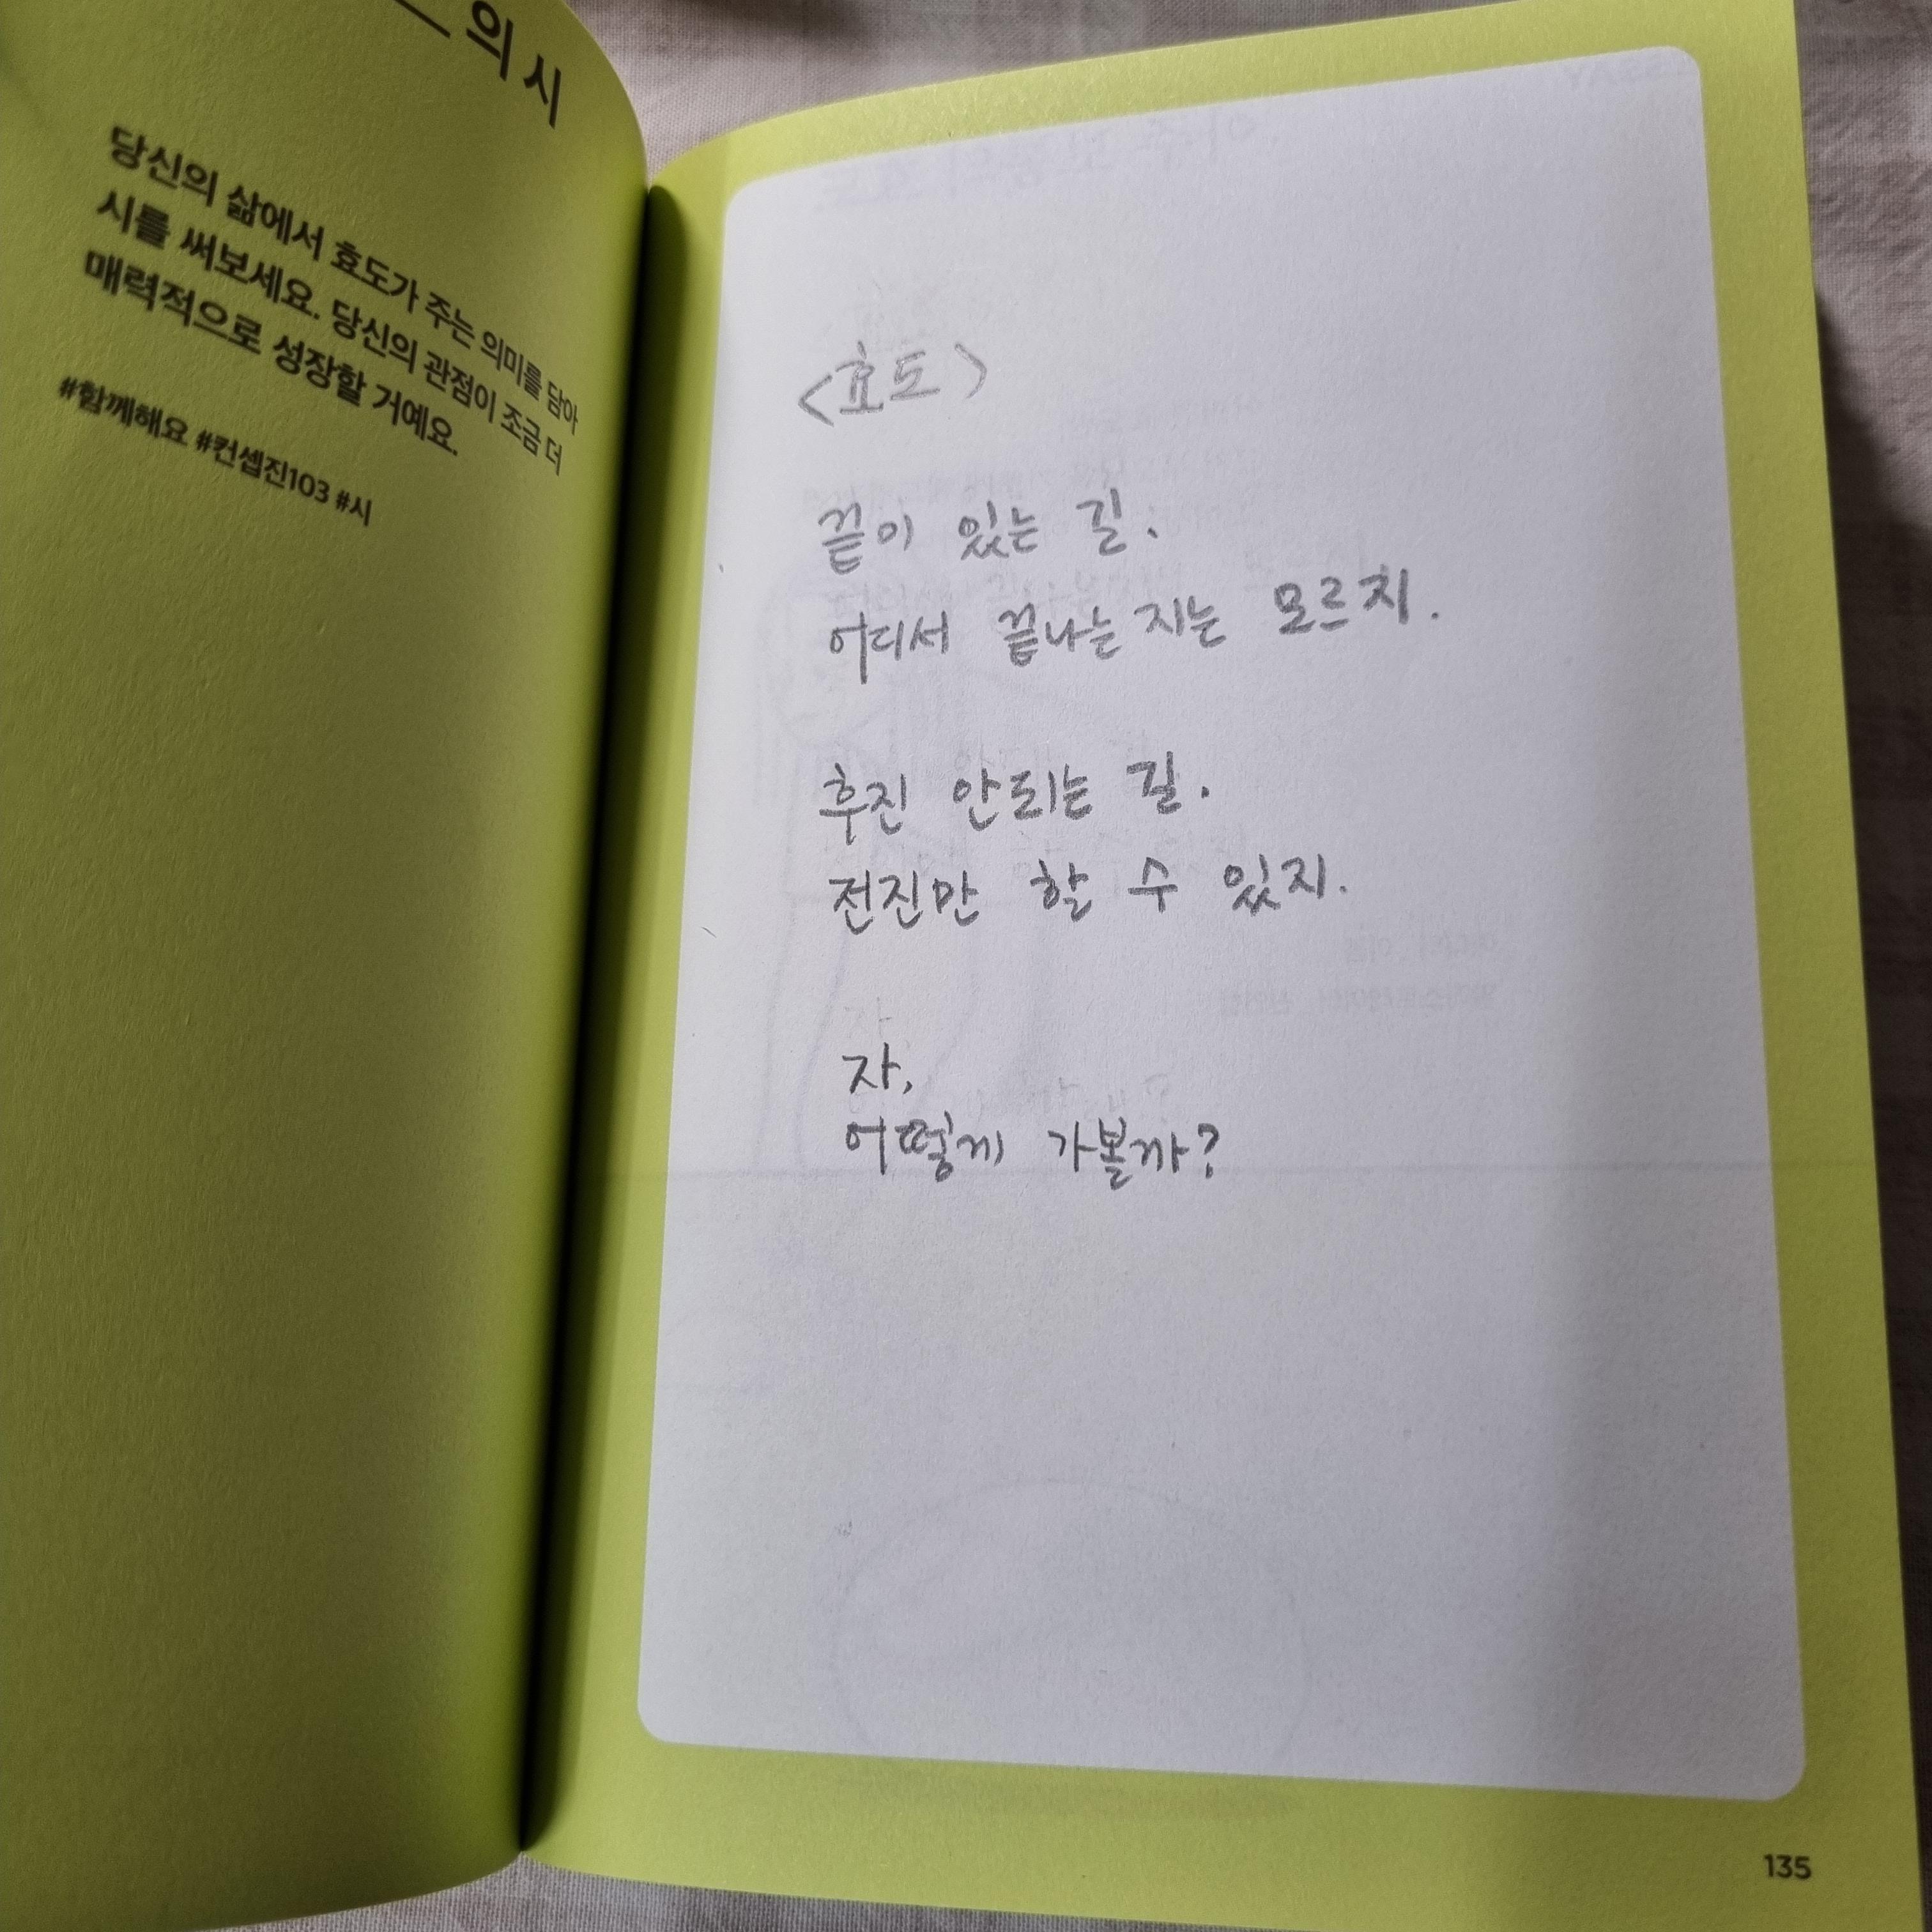 의 시
당신의 삶에서 효도가 주는 의미를 담아
시를 써보세요. 당신의 관점이 조금 더
매력적으로 성장할 거예요.
#함께해요 #컨셉진103 #시
<효도>
끝이 있는 길.
어디서 끝나는지는 모르지.
후진 안되는 길.
전진만 할 수 있지.
자,
어떻게 가볼까?
135